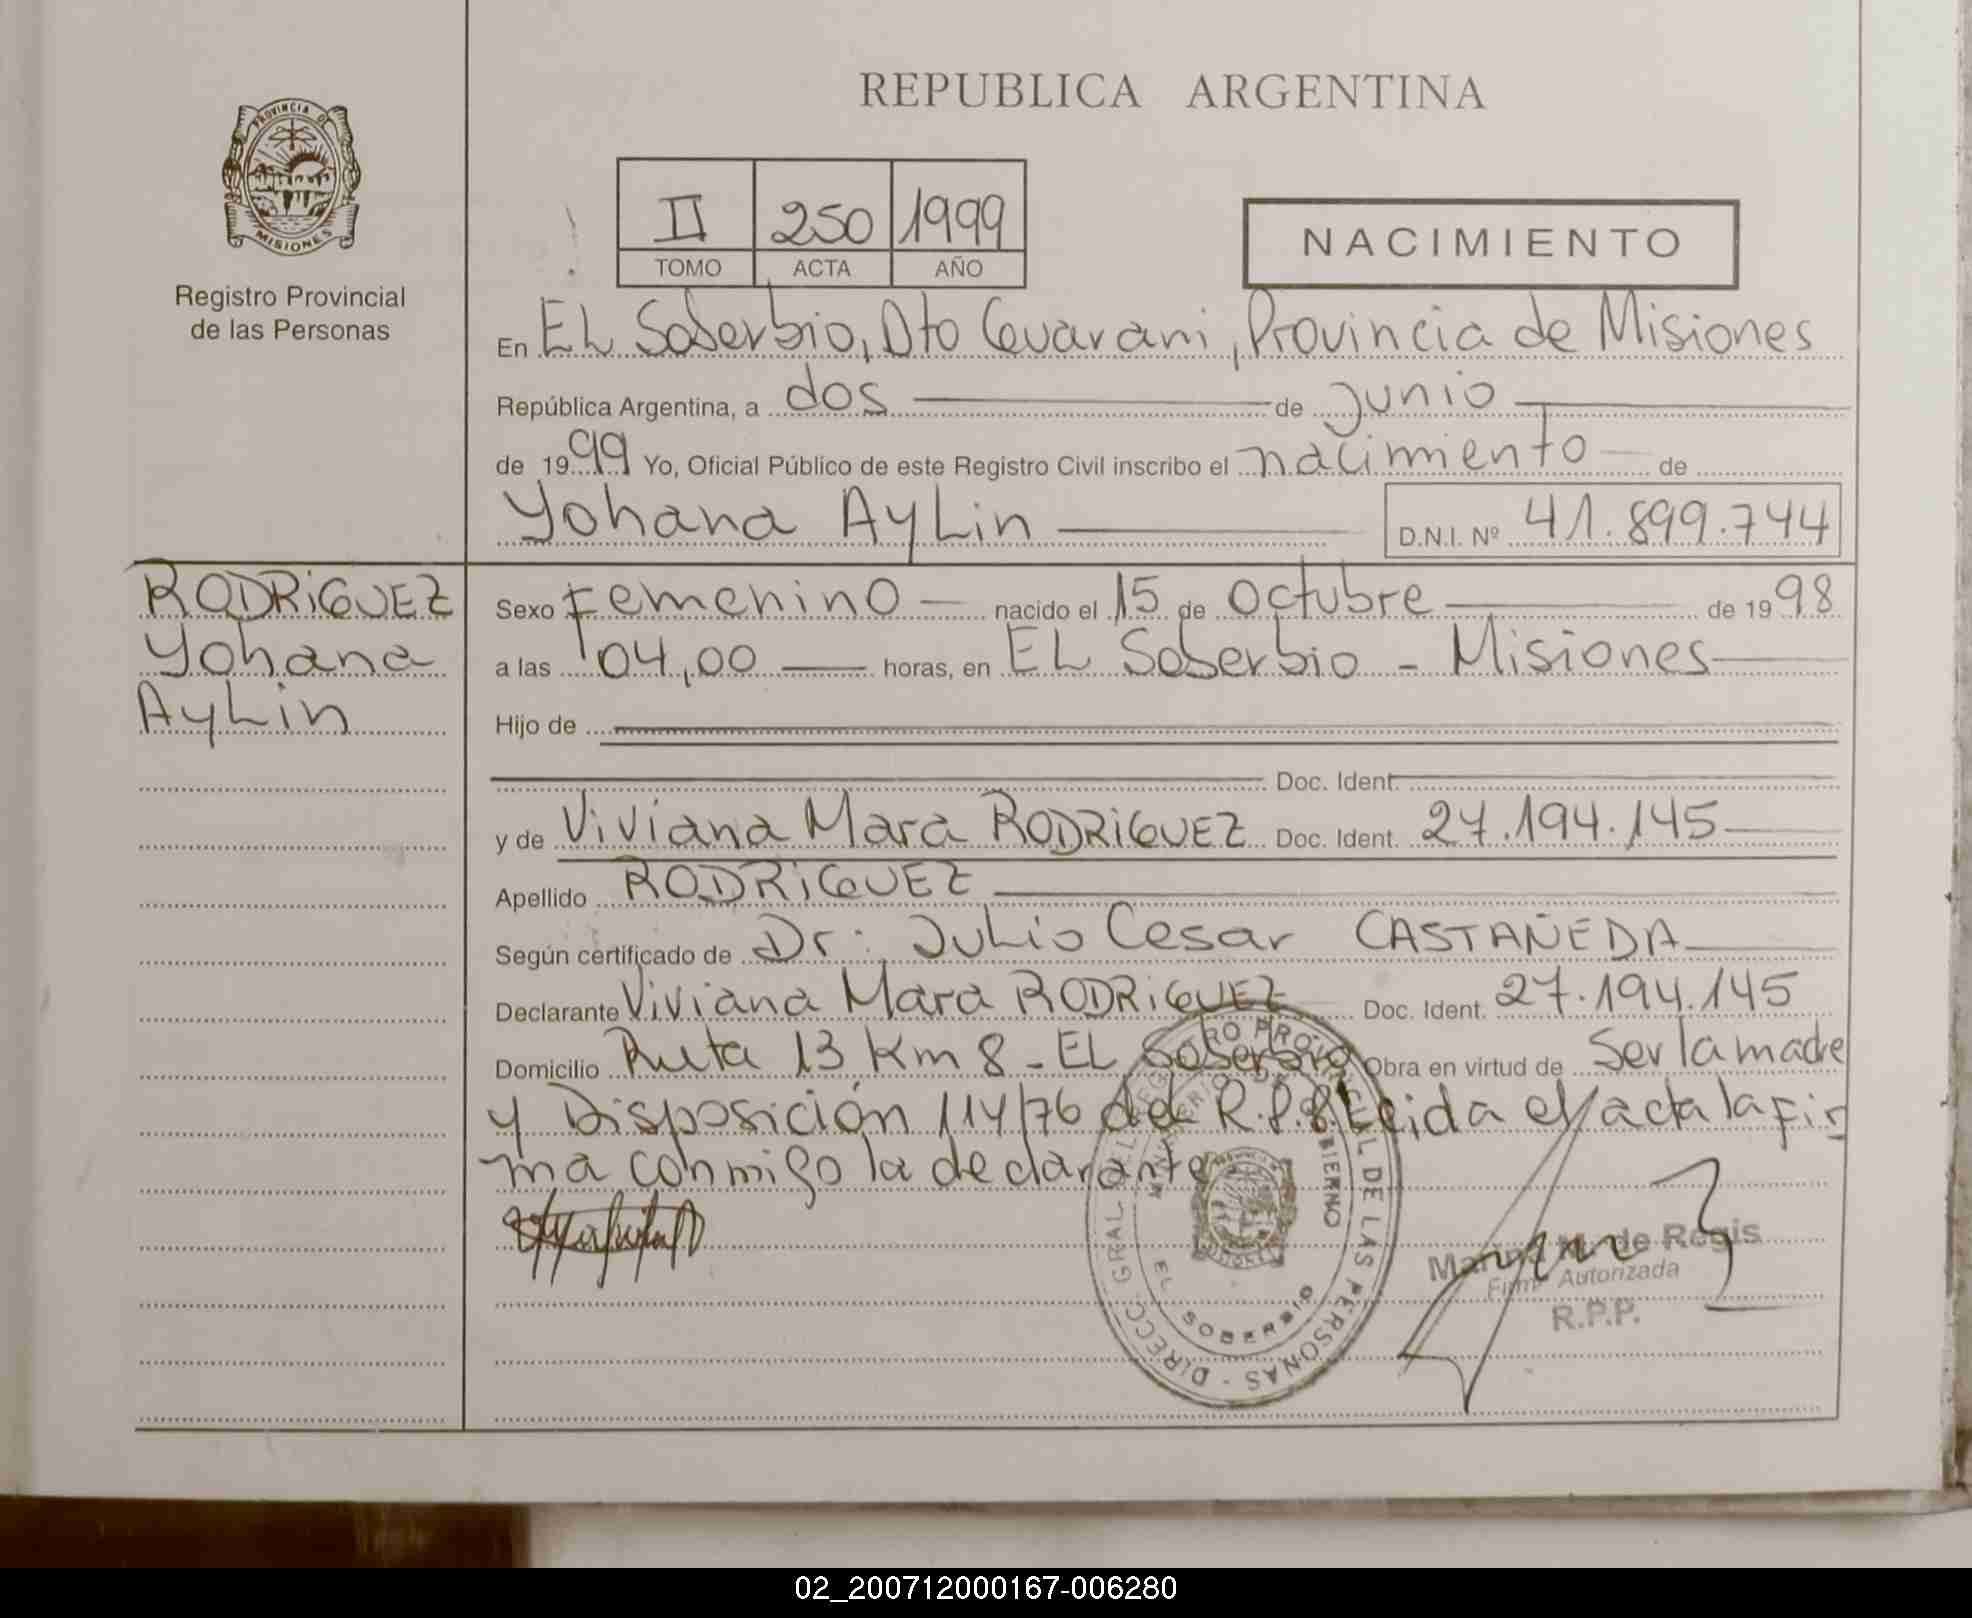 REPUBLICA ARGENTINA
PROVINCIA DE
MISIONES
Registro Provincial
de las Personas
II 250 1999
TOMO ACTA AÑO
NACIMIENTO
En EL Soberbio, Dto Guarani, Provincia de Misiones
República Argentina, a dos de junio
de 1999 Yo, Oficial Público de este Registro Civil inscribo el nacimiento de
Yohana AyLin D.N.I. Nº 41.899.744
RODRIGUEZ
Yohana
AyLin
Sexo Femenino nacido el 15 de Octubre de 1998
a las 04,00 horas, en EL Soberbio - Misiones
Hijo de
Doc. Ident.
y de Viviana Mara RODRIGUEZ Doc. Ident. 27.194.145
Apellido RODRIGUEZ
Según certificado de Dr: JuLio Cesar CASTAÑEDA
Declarante Viviana Mara RODRIGUEZ Doc. Ident. 27.194.145
Domicilio Ruta 13 Km 8 - EL Soberbio Obra en virtud de Ser la madre
y Disposición 114/76 del R.P.P. Leida el acta la fir
ma conmigo la declarante
DIRECC. GRAL. DEL REGISTRO PROVINCIAL DE LAS PERSONAS
MINISTERIO DE GOBIERNO
EL SOBERBIO
de Regis
Firma Autorizada
R.P.P.
02_200712000167-006280